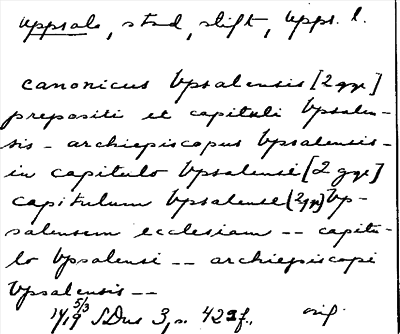 Uppsala, stad, stift, Upps. l.
canonicus Vpsalensis [2 ggr]
prepositi et capituli Vpsalen-
sis - archiepiscopus Vpsalensis -
in capitulo Vpsalensi [2 ggr]
capitulum Vpsalense [2 ggr] Vp-
salensem ecclesiam -- capitu-
lo Vpsalensi -- archiepiscopi
Vpsalensis --
5/3 1419 SDns 3, s. 42 f., orig.